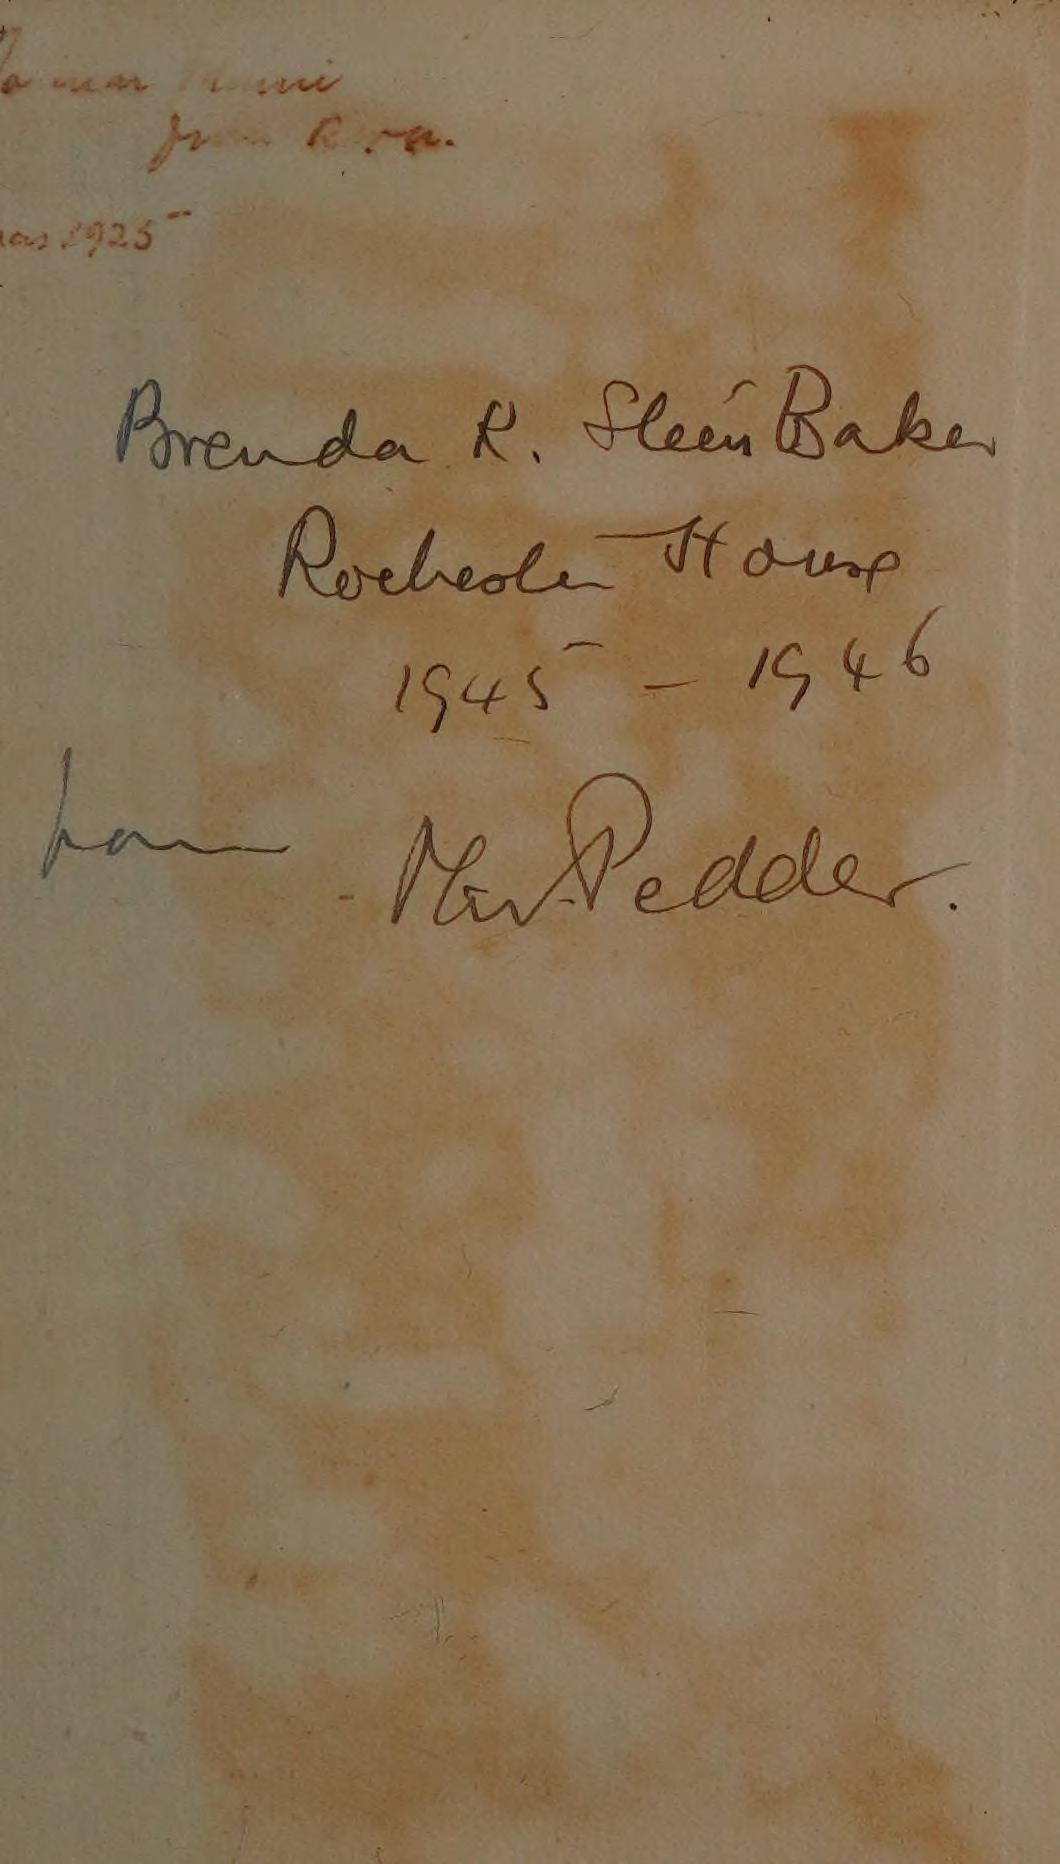 To dear
from
1925
Brenda R. Steen Baker
Rochester House
1945 - 1946
from Mrs. Pedder.